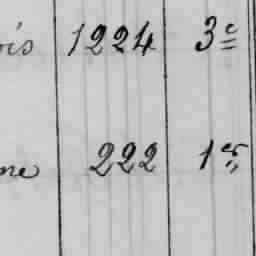 ois 1224 3e
ne 222 1er